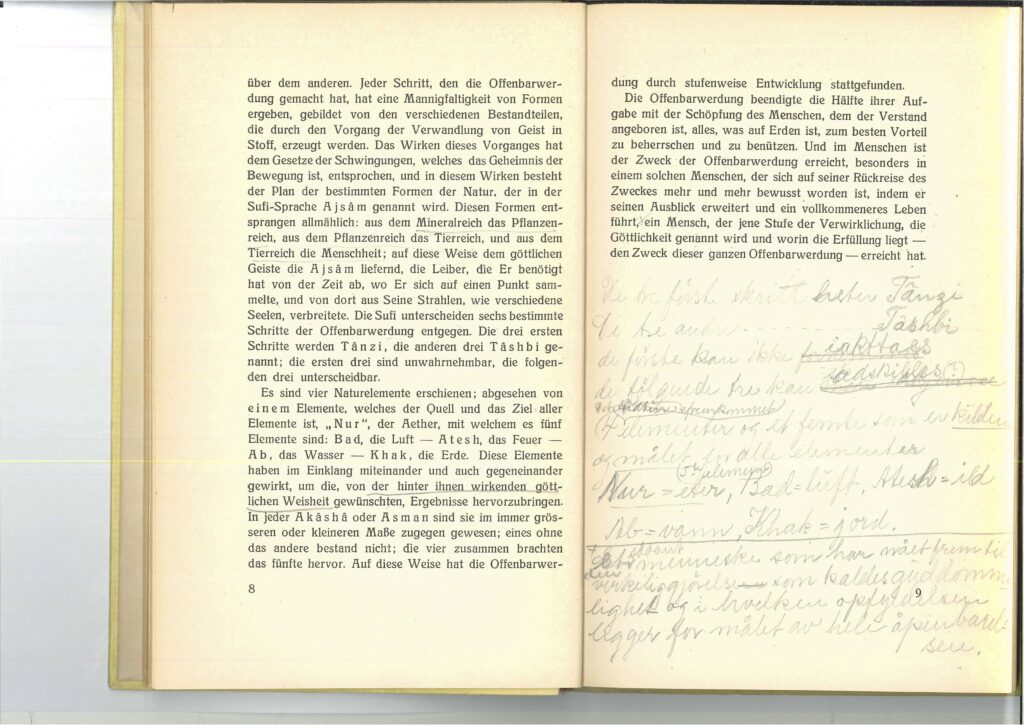 über dem anderen. Jeder Schritt, den die Offenbarwer-
dung gemacht hat, hat eine Mannigfaltigkeit von Formen
ergeben, gebildet von den verschiedenen Bestandteilen,
die durch den Vorgang der Verwandlung von Geist in
Stoff, erzeugt werden. Das Wirken dieses Vorganges hat
dem Gesetze der Schwingungen, welches das Geheimnis der
Bewegung ist, entsprochen, und in diesem Wirken besteht
der Plan der bestimmten Formen der Natur, der in der
Sufi-Sprache Ajsâm genannt wird. Diesen Formen ent-
sprangen allmählich: aus dem Mineralreich das Pflanzen-
reich, aus dem Pflanzenreich das Tierreich, und aus dem
Tierreich die Menschheit; auf diese Weise dem göttlichen
Geiste die Ajsâm liefernd, die Leiber, die Er benötigt
hat von der Zeit ab, wo Er sich auf einen Punkt sam-
melte, und von dort aus Seine Strahlen, wie verschiedene
Seelen, verbreitete. Die Sufi unterscheiden sechs bestimmte
Schritte der Offenbarwerdung entgegen. Die drei ersten
Schritte werden Tânzi, die anderen drei Tâshbi ge-
nannt; die ersten drei sind unwahrnehmbar, die folgen-
den drei unterscheidbar.
Es sind vier Naturelemente erschienen; abgesehen von
einem Elemente, welches der Quell und das Ziel aller
Elemente ist, „Nur“, der Aether, mit welchem es fünf
Elemente sind: Bad, die Luft — Atesh, das Feuer —
Ab, das Wasser — Khak, die Erde. Diese Elemente
haben im Einklang miteinander und auch gegeneinander
gewirkt, um die, von der hinter ihnen wirkenden gött-
lichen Weisheit gewünschten, Ergebnisse hervorzubringen.
In jeder Akâshâ oder Asman sind sie im immer grös-
seren oder kleineren Maße zugegen gewesen; eines ohne
das andere bestand nicht; die vier zusammen brachten
das fünfte hervor. Auf diese Weise hat die Offenbarwer-
8
dung durch stufenweise Entwicklung stattgefunden.
Die Offenbarwerdung beendigte die Hälfte ihrer Auf-
gabe mit der Schöpfung des Menschen, dem der Verstand
angeboren ist, alles, was auf Erden ist, zum besten Vorteil
zu beherrschen und zu benützen. Und im Menschen ist
der Zweck der Offenbarwerdung erreicht, besonders in
einem solchen Menschen, der sich auf seiner Rückreise des
Zweckes mehr und mehr bewusst worden ist, indem er
seinen Ausblick erweitert und ein vollkommeneres Leben
führt, ein Mensch, der jene Stufe der Verwirklichung, die
Göttlichkeit genannt wird und worin die Erfüllung liegt —
den Zweck dieser ganzen Offenbarwerdung — erreicht hat.
De tre første skritt heter Tânzi
De tre andre Tâshbi
de første kan ikke iakttaes
de følgende tre kan adskilles (?)
(4 elementer og et femte som er kilden
og målet for alle elementer
5te element
Nur = eter, Bad = luft, Atesh = ild
Ab = vann, Khak = jord.
menneske som har nået frem til
som kaldes guddomme-
lighet og i hvilken opfyldelsen
ligger for målet av hele åpenbarel-
sen.
9